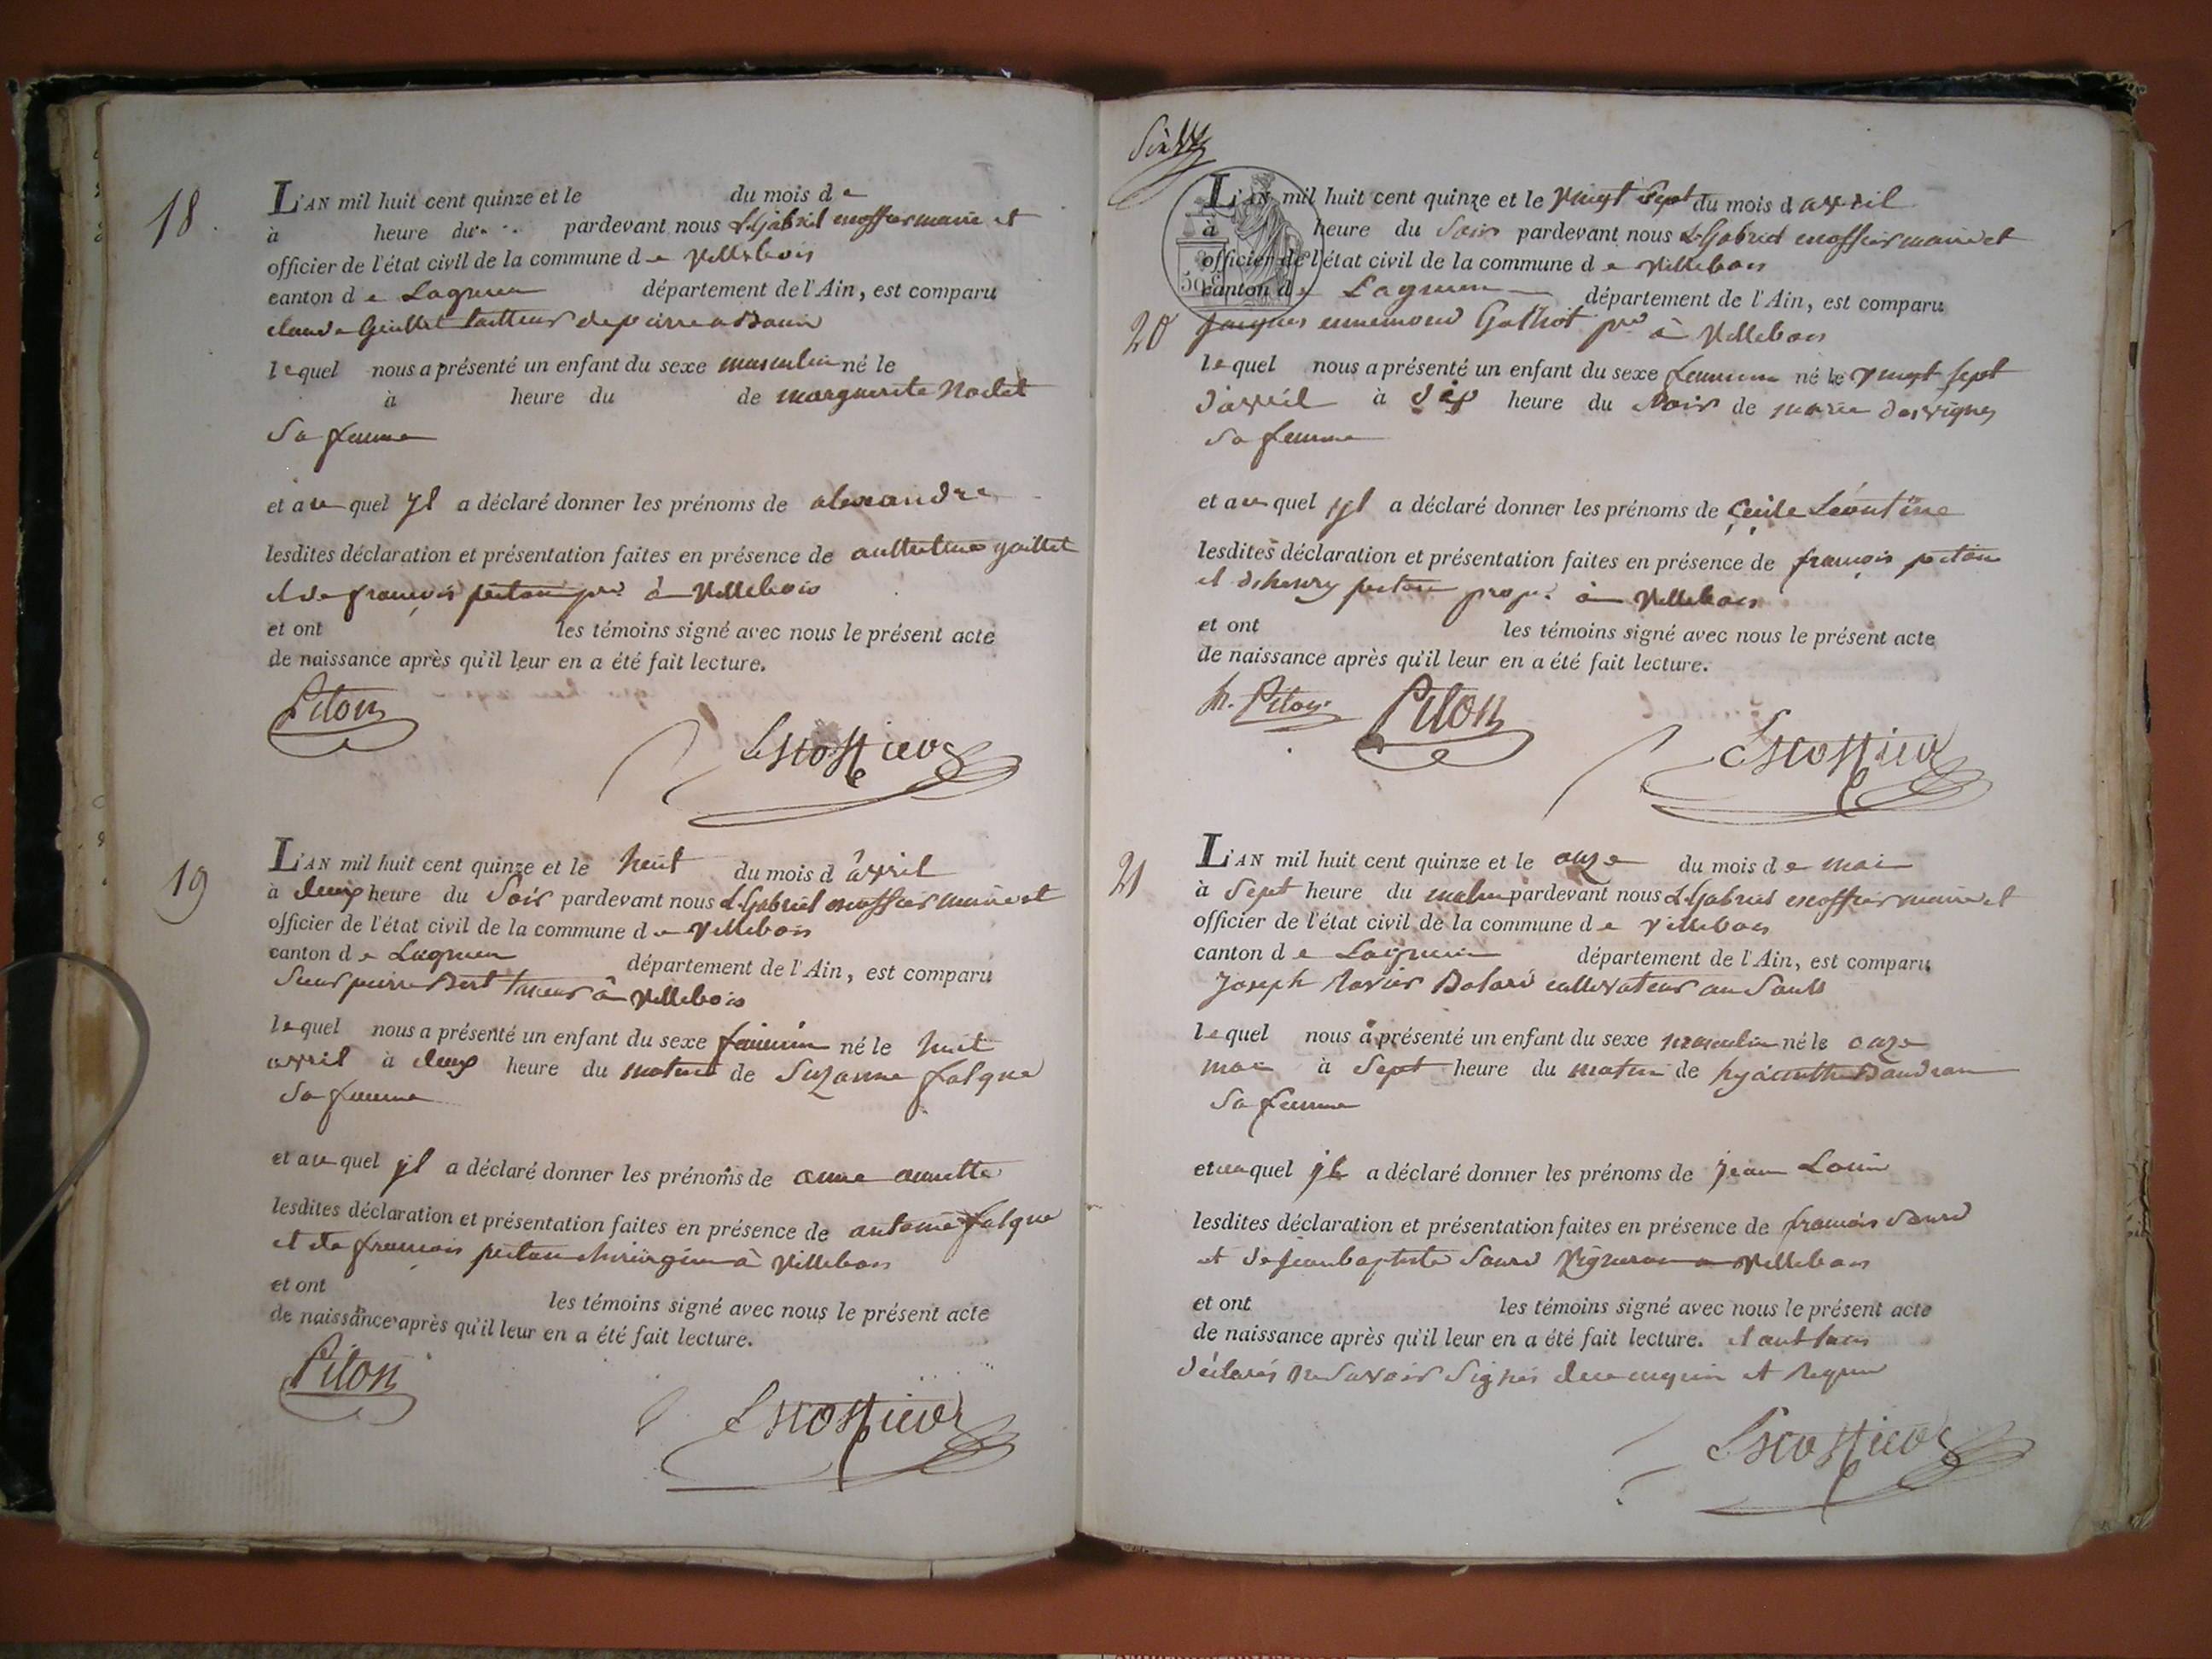 18
L'AN mil huit cent quinze et le du mois de
à heure du pardevant nous L. Gabriel escoffier maire et
officier de l'état civil de la commune de Villebois
canton de Lagnieu département de l'Ain, est comparu
claude Guillet tailleur de pierre a
lequel nous a présenté un enfant du sexe masculin né le
à heure du de marguerite Nodet
Sa femme
et au quel yl a déclaré donner les prénoms de alexandre
lesdites déclaration et présentation faites en présence de anthelme guillet
et de françois piton pre à Villebois
et ont les témoins signé avec nous le présent acte
de naissance après qu'il leur en a été fait lecture.
Piton
Lescoffier
19
L'AN mil huit cent quinze et le huit du mois d'avril
à deux heure du Soir pardevant nous L. Gabriel escoffier maire et
officier de l'état civil de la commune de Villebois
canton de Lagnieu département de l'Ain, est comparu
Sieur pierre Bert à Villebois
lequel nous a présenté un enfant du sexe féminin né le huit
avril à deux heure du matin de Suzanne falque
Sa femme
et au quel yl a déclaré donner les prénoms de anne annette
lesdites déclaration et présentation faites en présence de antoine falque
et de françois piton chirurgien à Villebois
et ont les témoins signé avec nous le présent acte
de naissance après qu'il leur en a été fait lecture.
Piton
Escoffier
Six
L'AN mil huit cent quinze et le vingt Sept du mois d'avril
à heure du Soir pardevant nous L. Gabriel escoffier maire et
officier de l'état civil de la commune de Villebois
canton de Lagnieu département de l'Ain, est comparu
20 Jacques ennemond Galliot pre à Villebois
lequel nous a présenté un enfant du sexe feminin né le vingt sept
d'avril à Six heure du Soir de marie desvignes
Sa femme
et au quel yl a déclaré donner les prénoms de Cécile Léontine
lesdites déclaration et présentation faites en présence de françois piton
et d'henry piton propr. à Villebois
et ont les témoins signé avec nous le présent acte
de naissance après qu'il leur en a été fait lecture.
h. Piton Piton
Escoffier
21
L'AN mil huit cent quinze et le onze du mois de mai
à Sept heure du matin pardevant nous L. Gabriel escoffier maire et
officier de l'état civil de la commune de Villebois
canton de Lagnieu département de l'Ain, est comparu
Joseph Xavier cultivateur au Sault
lequel nous a présenté un enfant du sexe masculin né le onze
mai à Sept heure du matin de hyacinthe Baudran
Sa femme
et auquel yl a déclaré donner les prénoms de Jean Louis
lesdites déclaration et présentation faites en présence de françois
et de jean baptiste Vigneron a Villebois
et ont les témoins signé avec nous le présent acte
de naissance après qu'il leur en a été fait lecture. et ont tous
déclarés ne Savoir Signer de ce enquis et requis
Escoffier